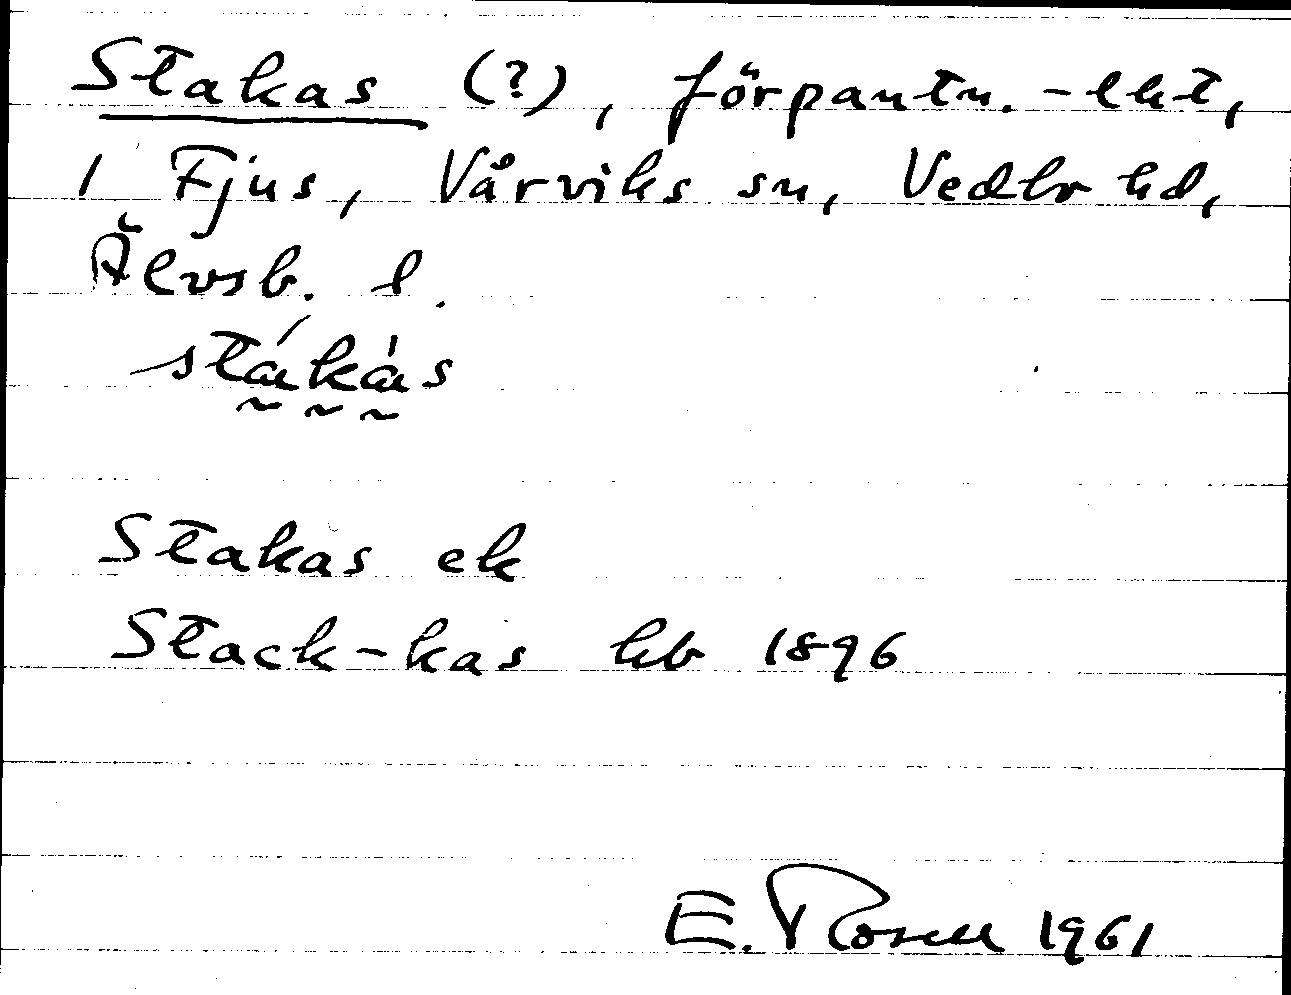 Stakas (?), förpantn. -lht,
1 Fjus, Vårviks sn, Vedbo hd,
Älvsb. l.
stákàs
Stakas ek
Stack-kas hb 1896
E. Rosell 1961